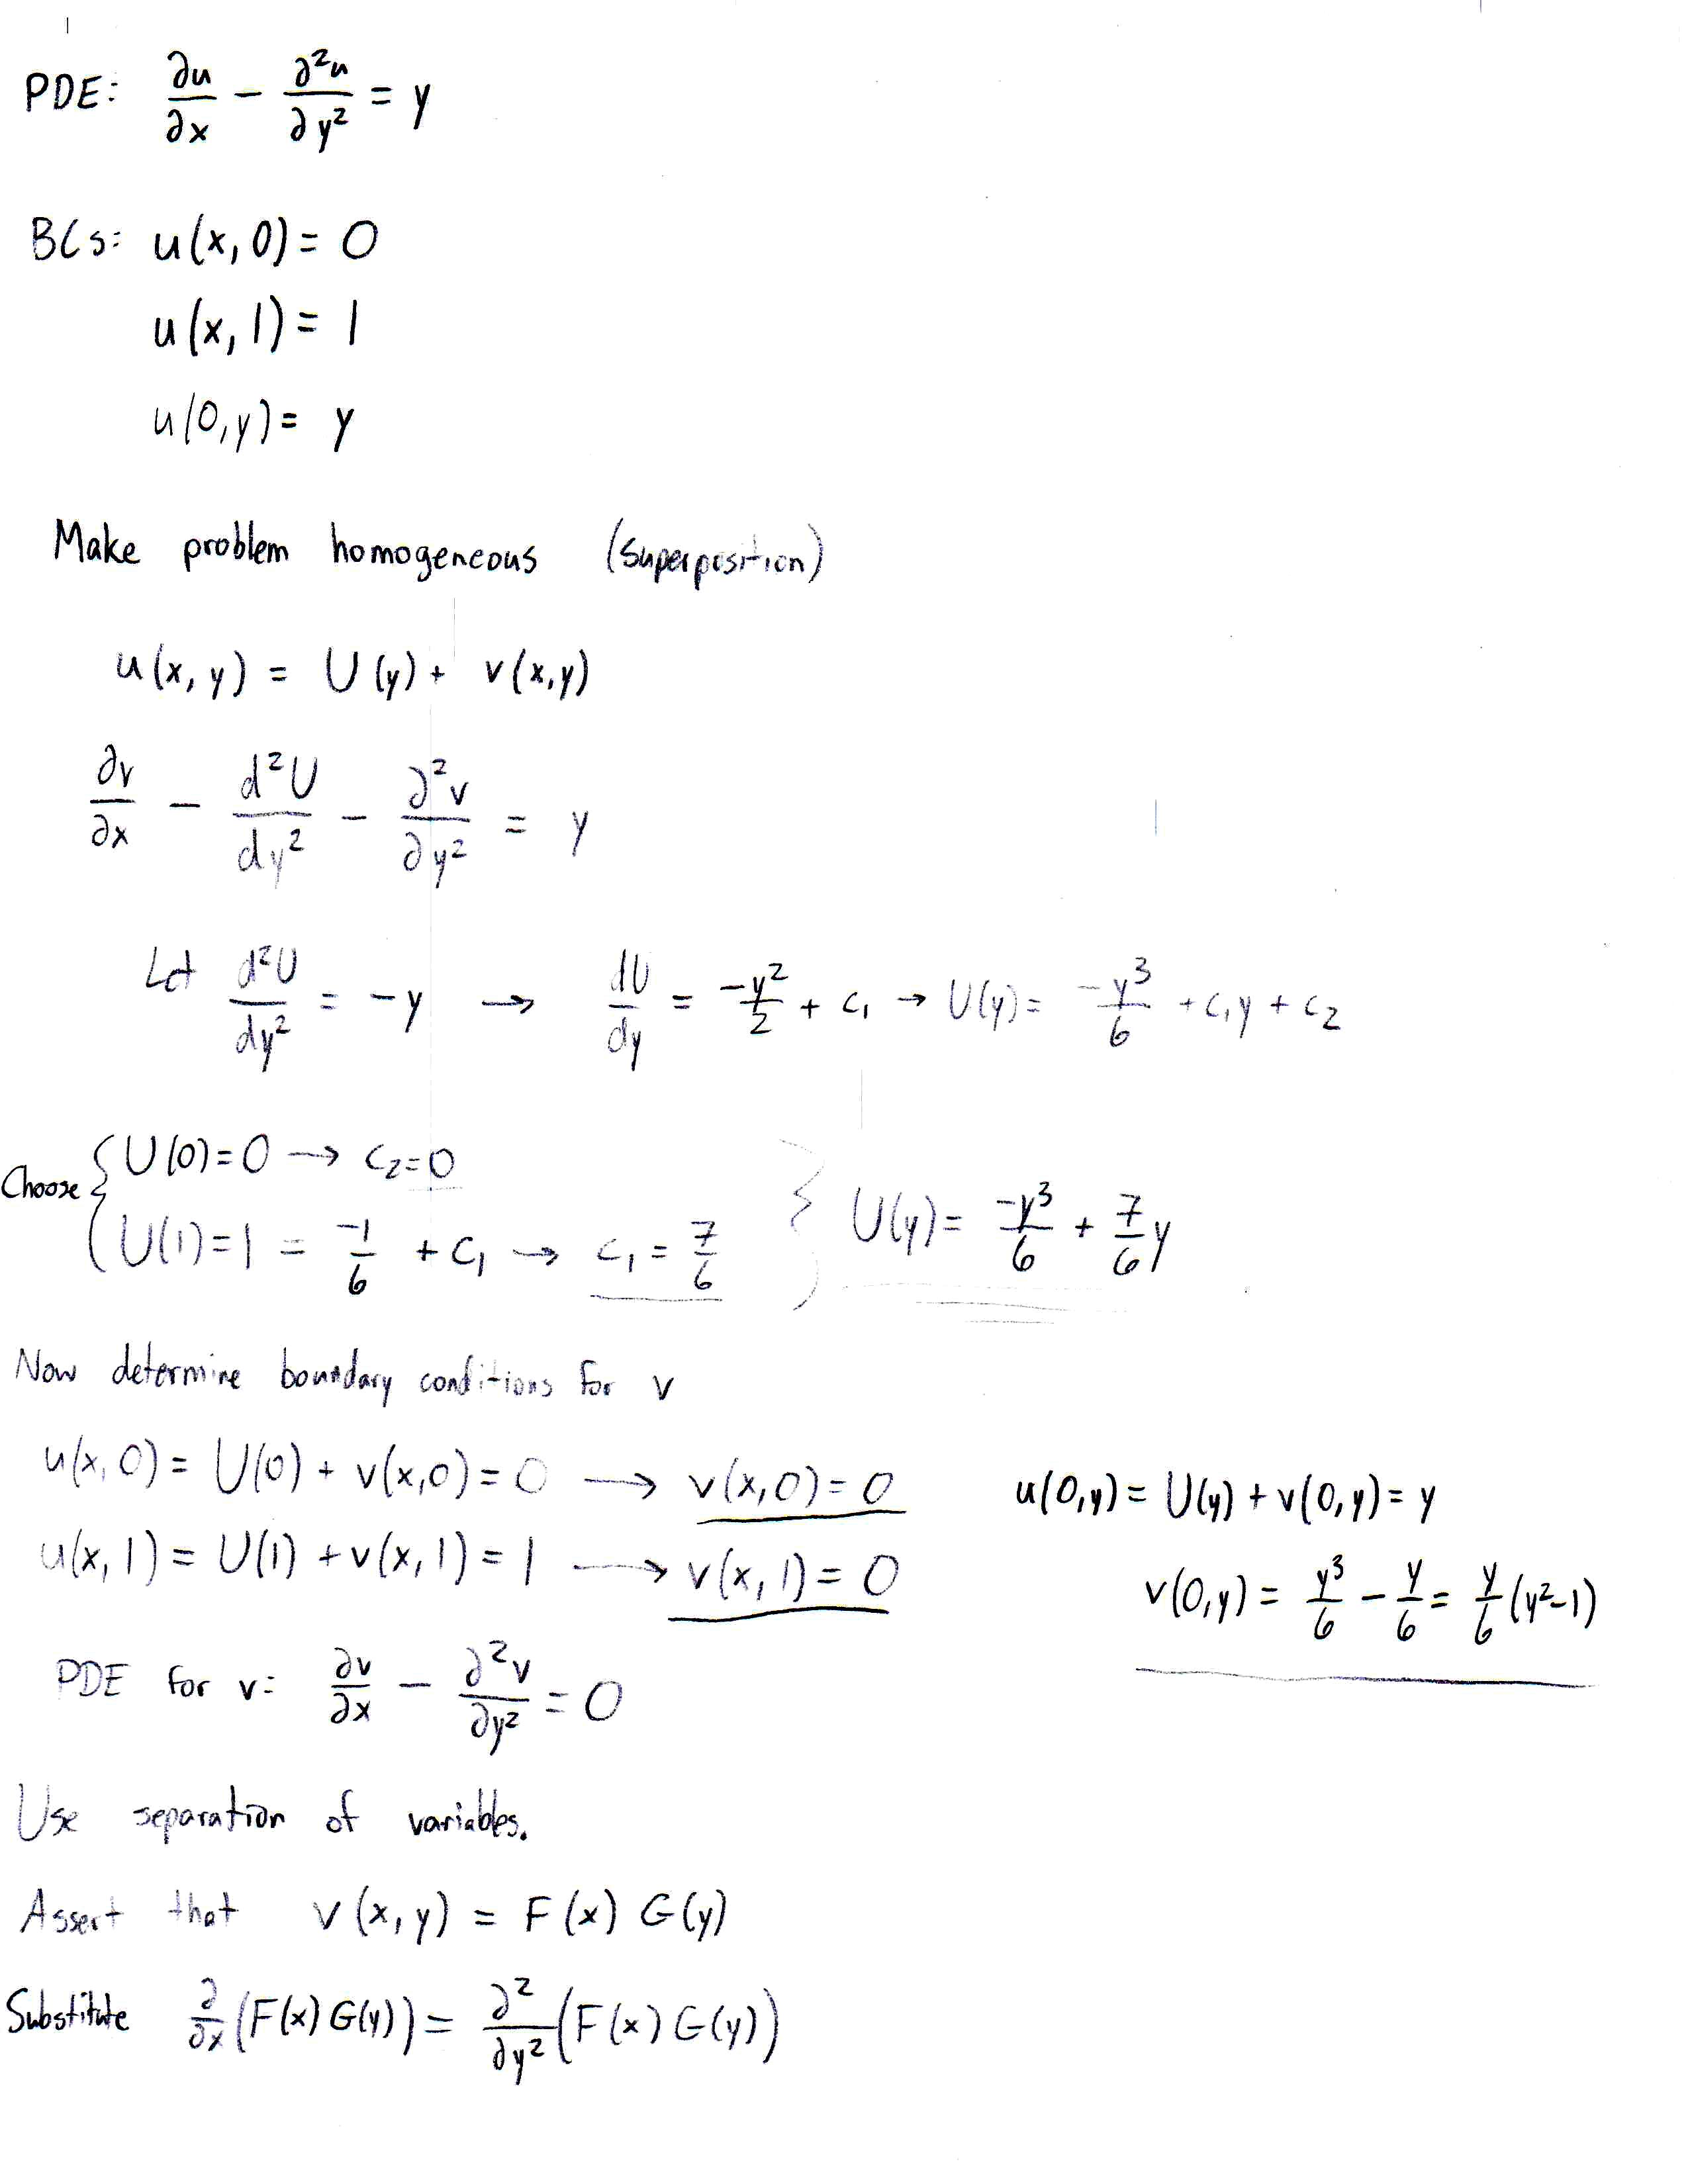 PDE: ∂u/∂x − ∂²u/∂y² = y
BCs: u(x, 0) = 0
u(x, 1) = 1
u(0, y) = y
Make problem homogeneous (Superposition)
u(x, y) = U(y) + v(x, y)
∂v/∂x − d²U/dy² − ∂²v/∂y² = y
Let d²U/dy² = −y → dU/dy = −y²/2 + c₁ → U(y) = −y³/6 + c₁y + c₂
Choose { U(0) = 0 → c₂ = 0
U(1) = 1 = −1/6 + c₁ → c₁ = 7/6 } U(y) = −y³/6 + 7/6 y
Now determine boundary conditions for v
u(x, 0) = U(0) + v(x, 0) = 0 → v(x, 0) = 0
u(x, 1) = U(1) + v(x, 1) = 1 → v(x, 1) = 0
u(0, y) = U(y) + v(0, y) = y
v(0, y) = y³/6 − y/6 = y/6 (y²−1)
PDE for v: ∂v/∂x − ∂²v/∂y² = 0
Use separation of variables.
Assert that v(x, y) = F(x) G(y)
Substitute ∂/∂x (F(x) G(y)) = ∂²/∂y² (F(x) G(y))